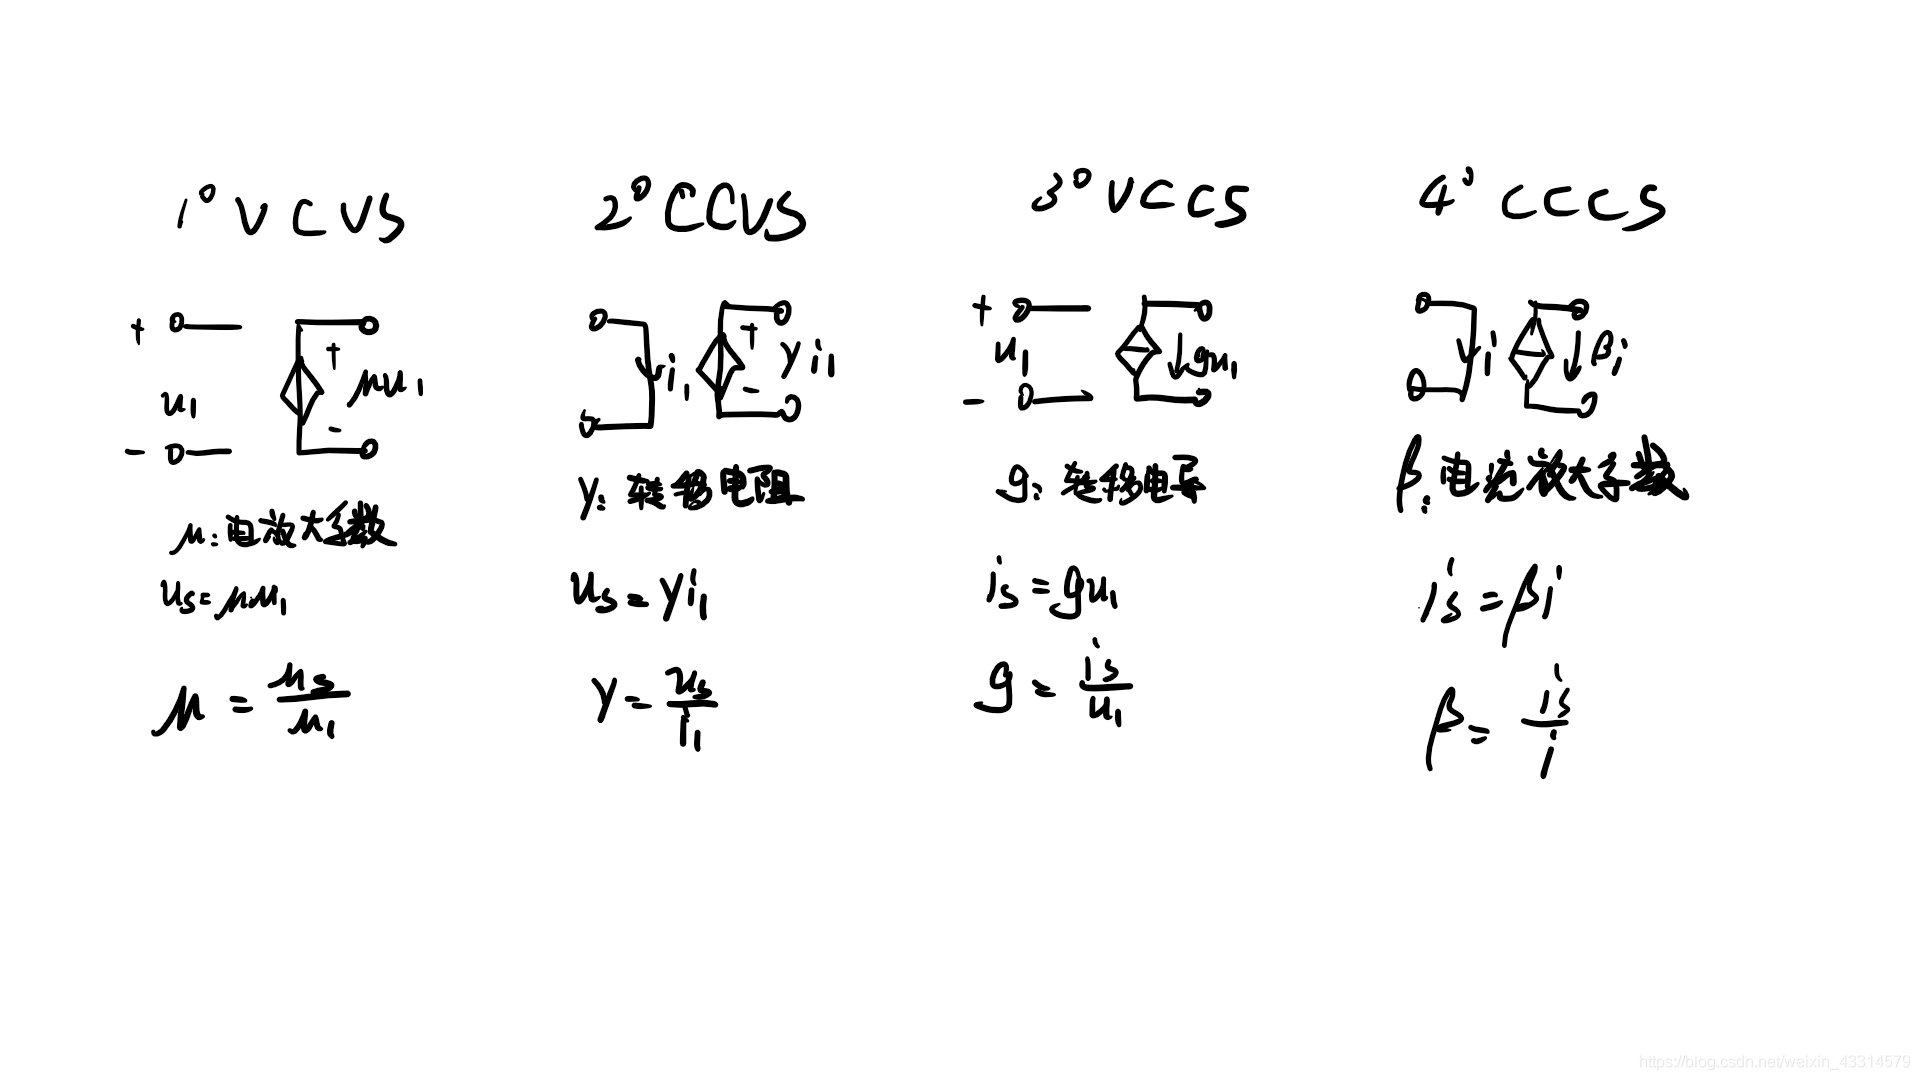 1° VCVS
+
u₁
-
+
μu₁
-
μ: 电放大系数
us=μu₁
μ = us/u₁
2° CCVS
i₁
+
γi₁
-
γ: 转移电阻
us=γi₁
γ = us/i₁
3° VCCS
+
u₁
-
gu₁
g: 转移电导
is=gu₁
g = is/u₁
4° CCCS
i
βi
β: 电流放大系数
is=βi
β = is/i
https://blog.csdn.net/weixin_43314579